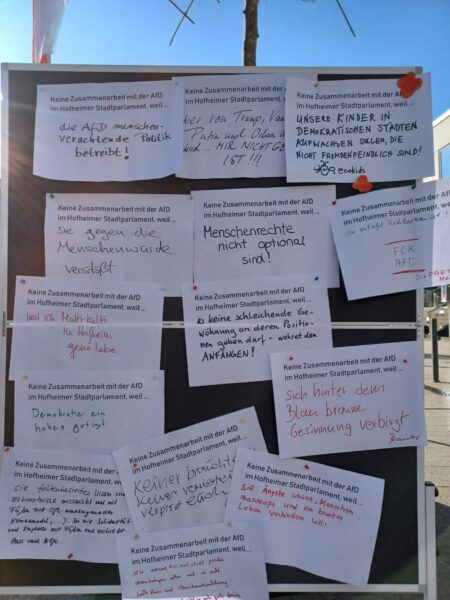 Keine Zusammenarbeit mit der AfD
im Hofheimer Stadtparlament, weil...
die AfD menschen-
verachtende Politik
betreibt!
Keine Zusammenarbeit mit der AfD im
Hofheimer Stadtparlament, weil...
wer von Trump,
Putin und Orban
MIR NICHT GE
IST!!!
Keine Zusammenarbeit mit der AfD
im Hofheimer Stadtparlament, weil...
UNSERE KINDER IN
DEMOKRATISCHEN STÄDTEN
AUFWACHSEN SOLLEN, DIE
NICHT FREMDENFEINDLICH SIND!
ecokids
Keine Zusammenarbeit mit der AfD
im Hofheimer Stadtparlament, weil...
sie gegen die
Menschenwürde
verstößt
Keine Zusammenarbeit mit der AfD
im Hofheimer Stadtparlament, weil...
Menschenrechte
nicht optional
sind!
Keine Zusammenarbeit mit der AfD
im Hofheimer Stadtparlament, weil...
FCK
AFD
Keine Zusammenarbeit mit der AfD
im Hofheimer Stadtparlament, weil...
weil ich Multi-kulti
in Hofheim
gerne lebe
Keine Zusammenarbeit mit der AfD
im Hofheimer Stadtparlament, weil...
es keine schleichende Ge-
wöhnung an deren Positio-
nen geben darf - wehret den
ANFÄNGEN!
Keine Zusammenarbeit mit der AfD
im Hofheimer Stadtparlament, weil...
Demokratie ein
hohes gut ist
Keine Zusammenarbeit mit der AfD
im Hofheimer Stadtparlament, weil...
sich hinter dem
Blau braune
Gesinnung verbirgt
Rainer
Keine Zusammenarbeit mit der AfD
im Hofheimer Stadtparlament, weil...
sie
missachtet und mit
Füßen tritt
Klimawandel, ...). Sie die Solidarität
und Empathie mit Füßen
Hass und
Keine Zusammenarbeit mit der AfD
im Hofheimer Stadtparlament, weil...
keiner braucht
keiner vermisst
verpisst
Keine Zusammenarbeit mit der AfD
im Hofheimer Stadtparlament, weil...
Sie Ängste schürt, Menschen
und ein buntes
Leben verhindern will!
Keine Zusammenarbeit mit der AfD
im Hofheimer Stadtparlament, weil...